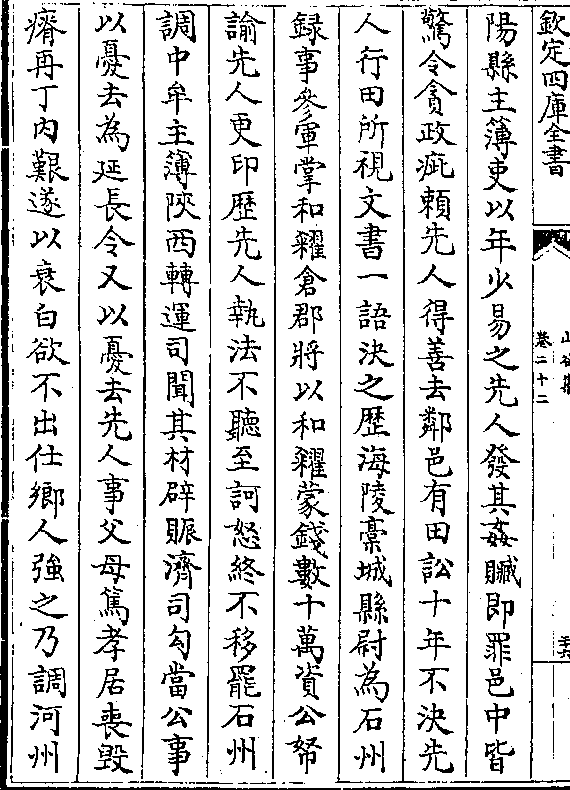 欽定四庫全書
卷二十二
陽縣主簿吏以年少易之先人發其姦贓即罪邑中皆
驚令貪政疵頼先人得善去鄰邑有田訟十年不決先
人行田所視文書一語決之歴海陵槀城縣尉為石州
録事參軍掌和糴倉郡將以和糴蒙錢數十萬資公帑
諭先人更印歴先人執法不聽至訶怒終不移罷石州
調中牟主簿陜西轉運司聞其材辟賑濟司勾當公事
以憂去為延長令又以憂去先人事父母篤孝居喪毀
瘠再丁内艱遂以衰白欲不出仕鄉人強之乃調河州